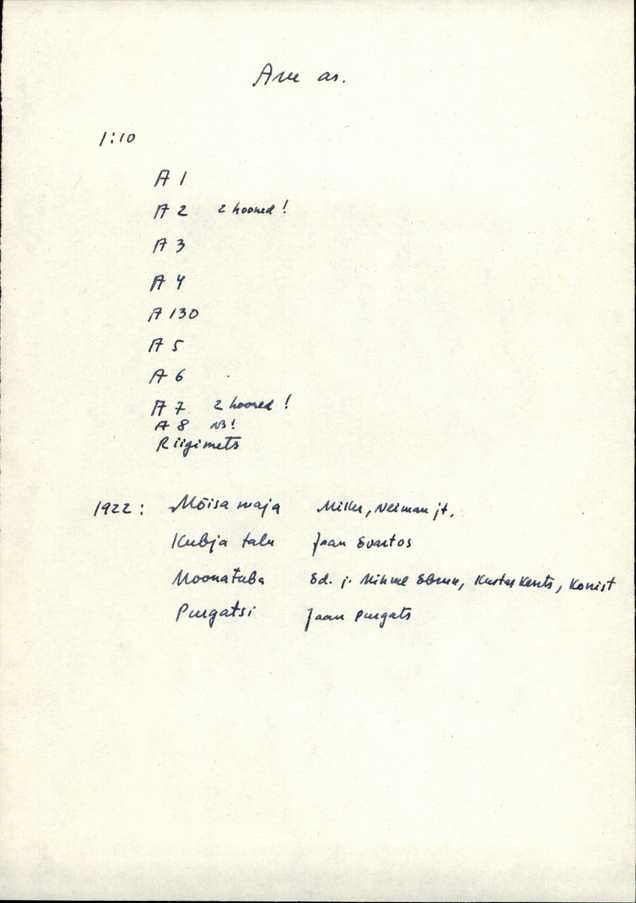 Aru as.
1:10
A 1
A 2 2 hooned!
A 3
A 4
A 130
A 5
A 6
A 7 2 hooned!
A 8 NB!
Riigimets
1922: Mõisa maja Neiman jt.
Kubja talu Jaan Evartos
Moonatuba Ed. j. Mihkel Kustas Kents, Konist
Purgatsi Jaan Purgats